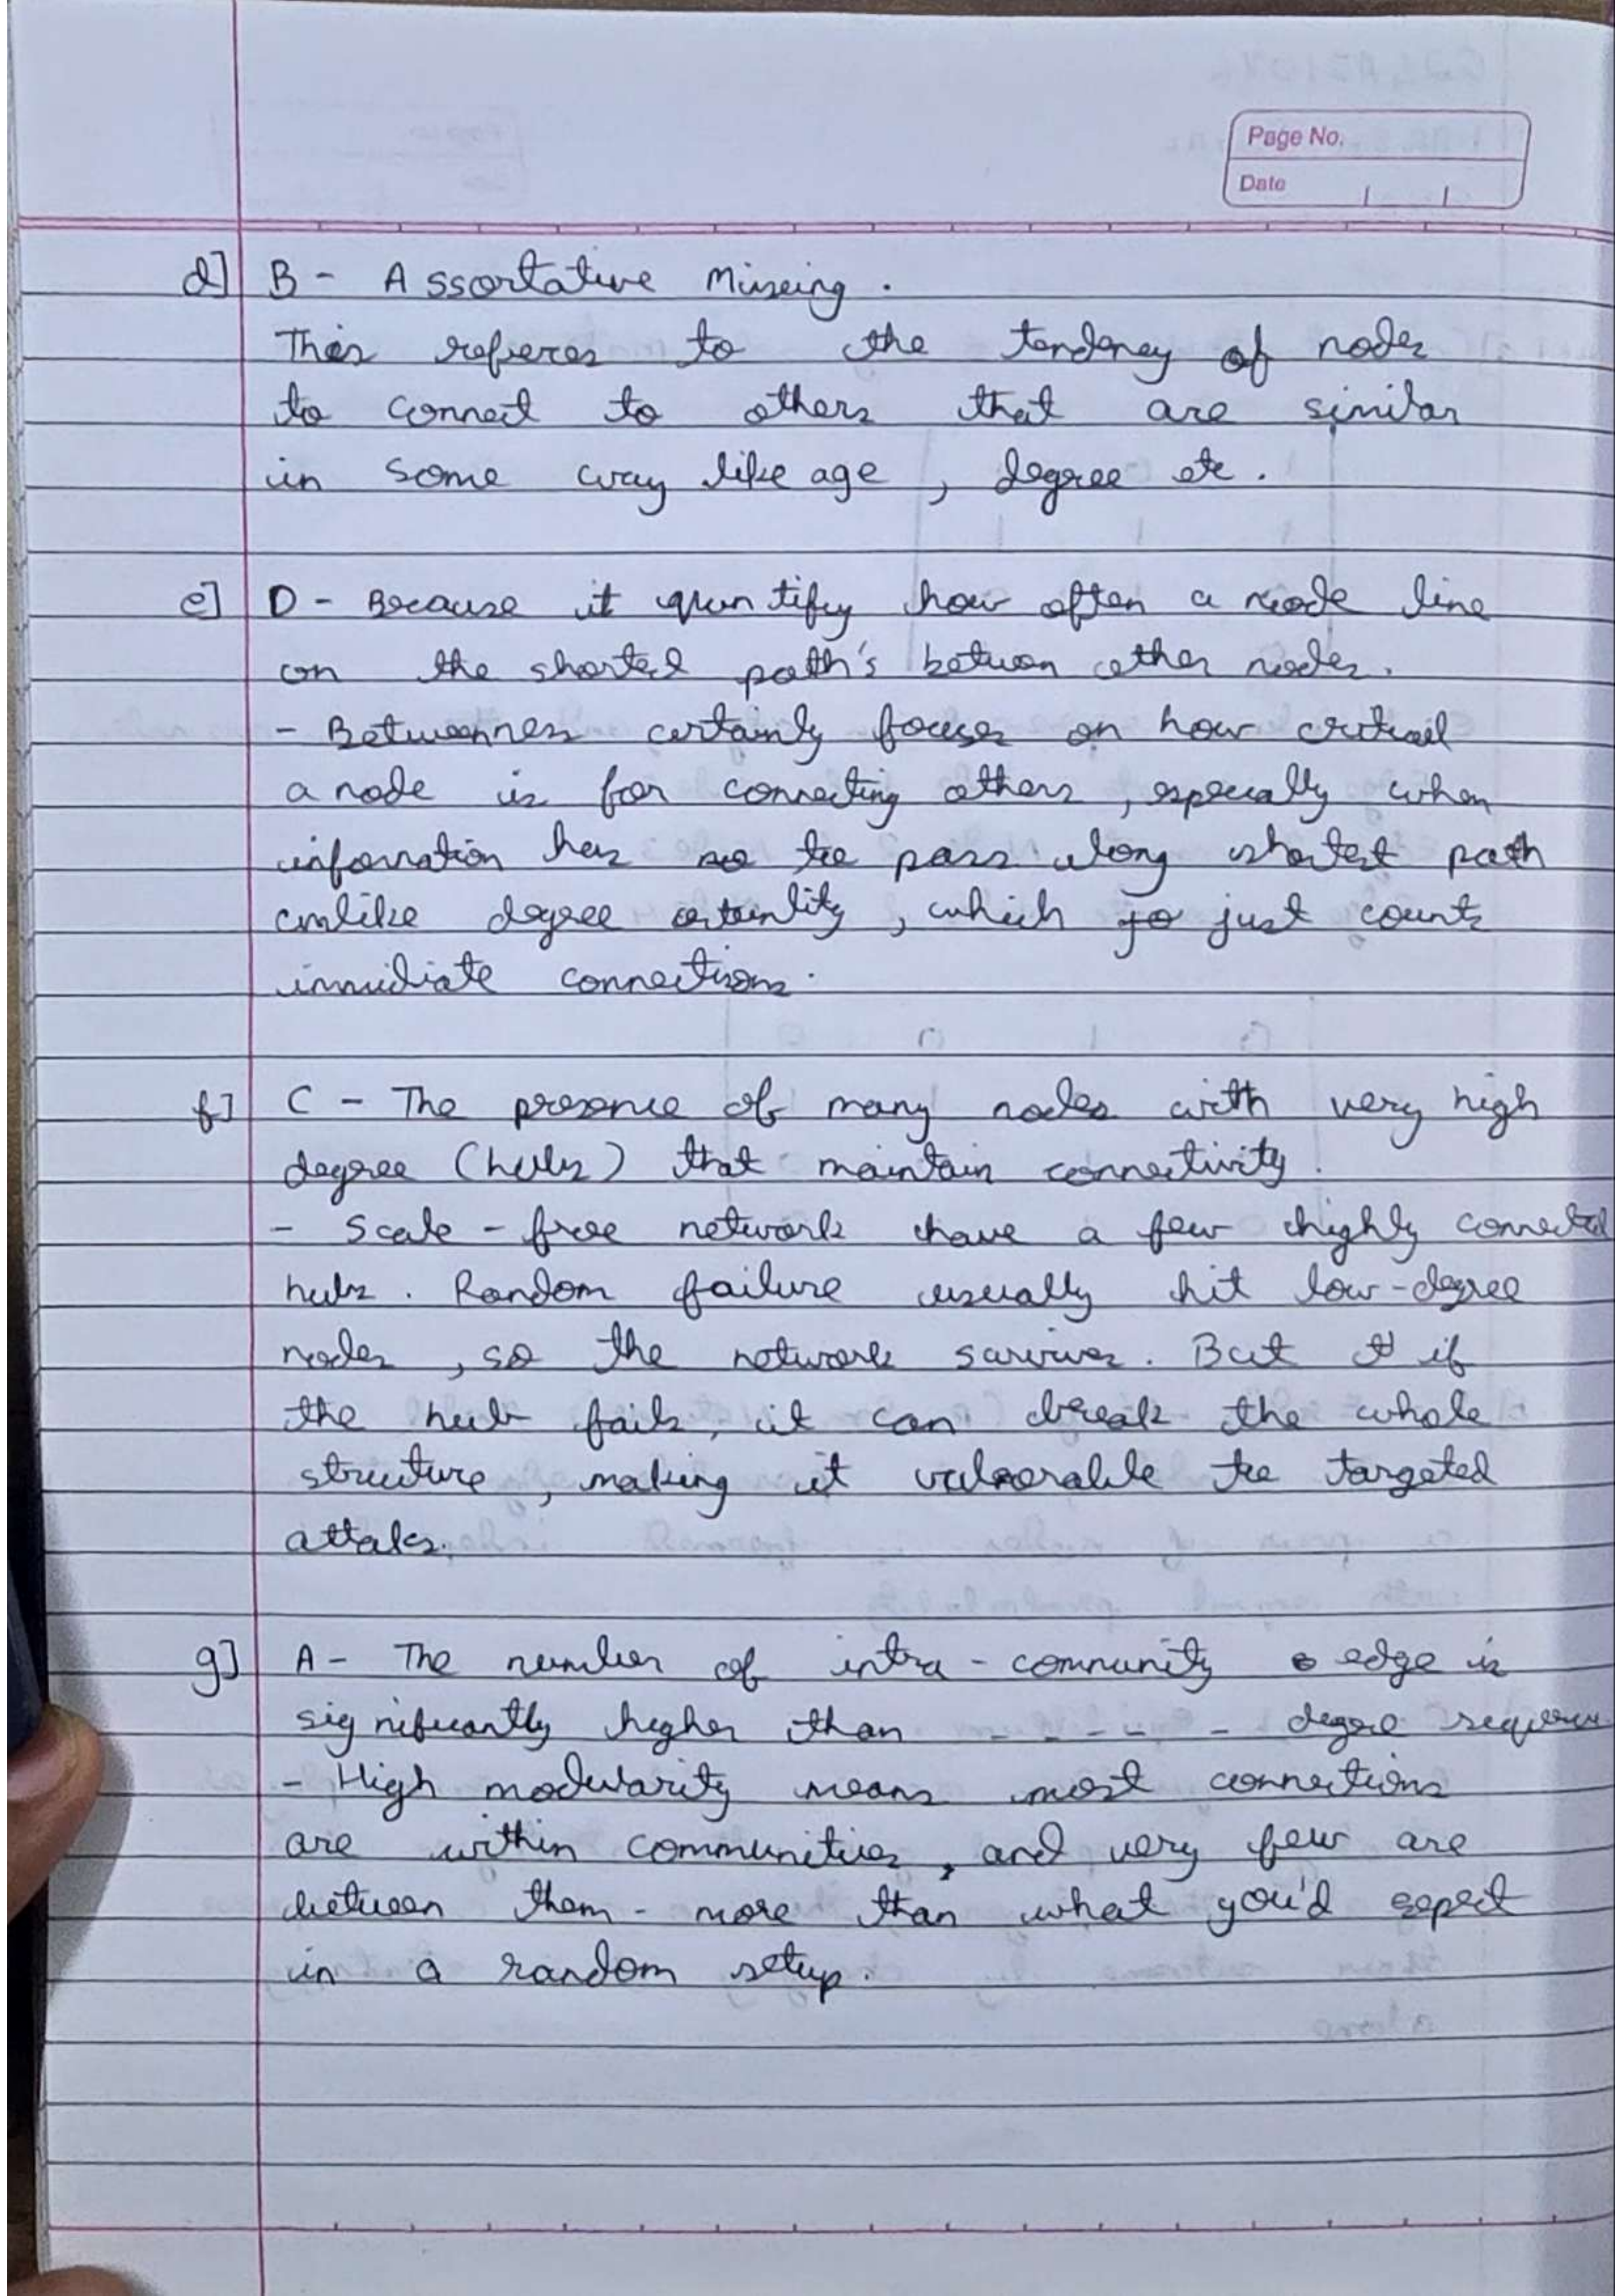 Page No.
Date
d] B - Assortative Mixeing.
This referes to the tendency of nodes
to connect to others that are similar
in some way like age, degree etc.
e] D - Because it quantify how often a node line
on the shortest path's between other nodes.
- Betweennes certainly focuses on how critical
a node is for connecting others, especially when
information has to pass along shortest path
unlike degree certainlity, which just counts
immidiate connections.
f] C - The presence of many nodes with very high
degree (hubs) that maintain connectivity.
- Scale-free network have a few highly connected
hubs. Random failure usually hit low-degree
nodes, so the network survives. But if
the hub fails, it can break the whole
structure, making it vulnerable to targeted
attaks.
g] A - The number of intra-community edge is
significantly higher than - - - - degree
- High modularity means most connections
are within communities, and very few are
between them - more than what you'd expect
in a random setup.